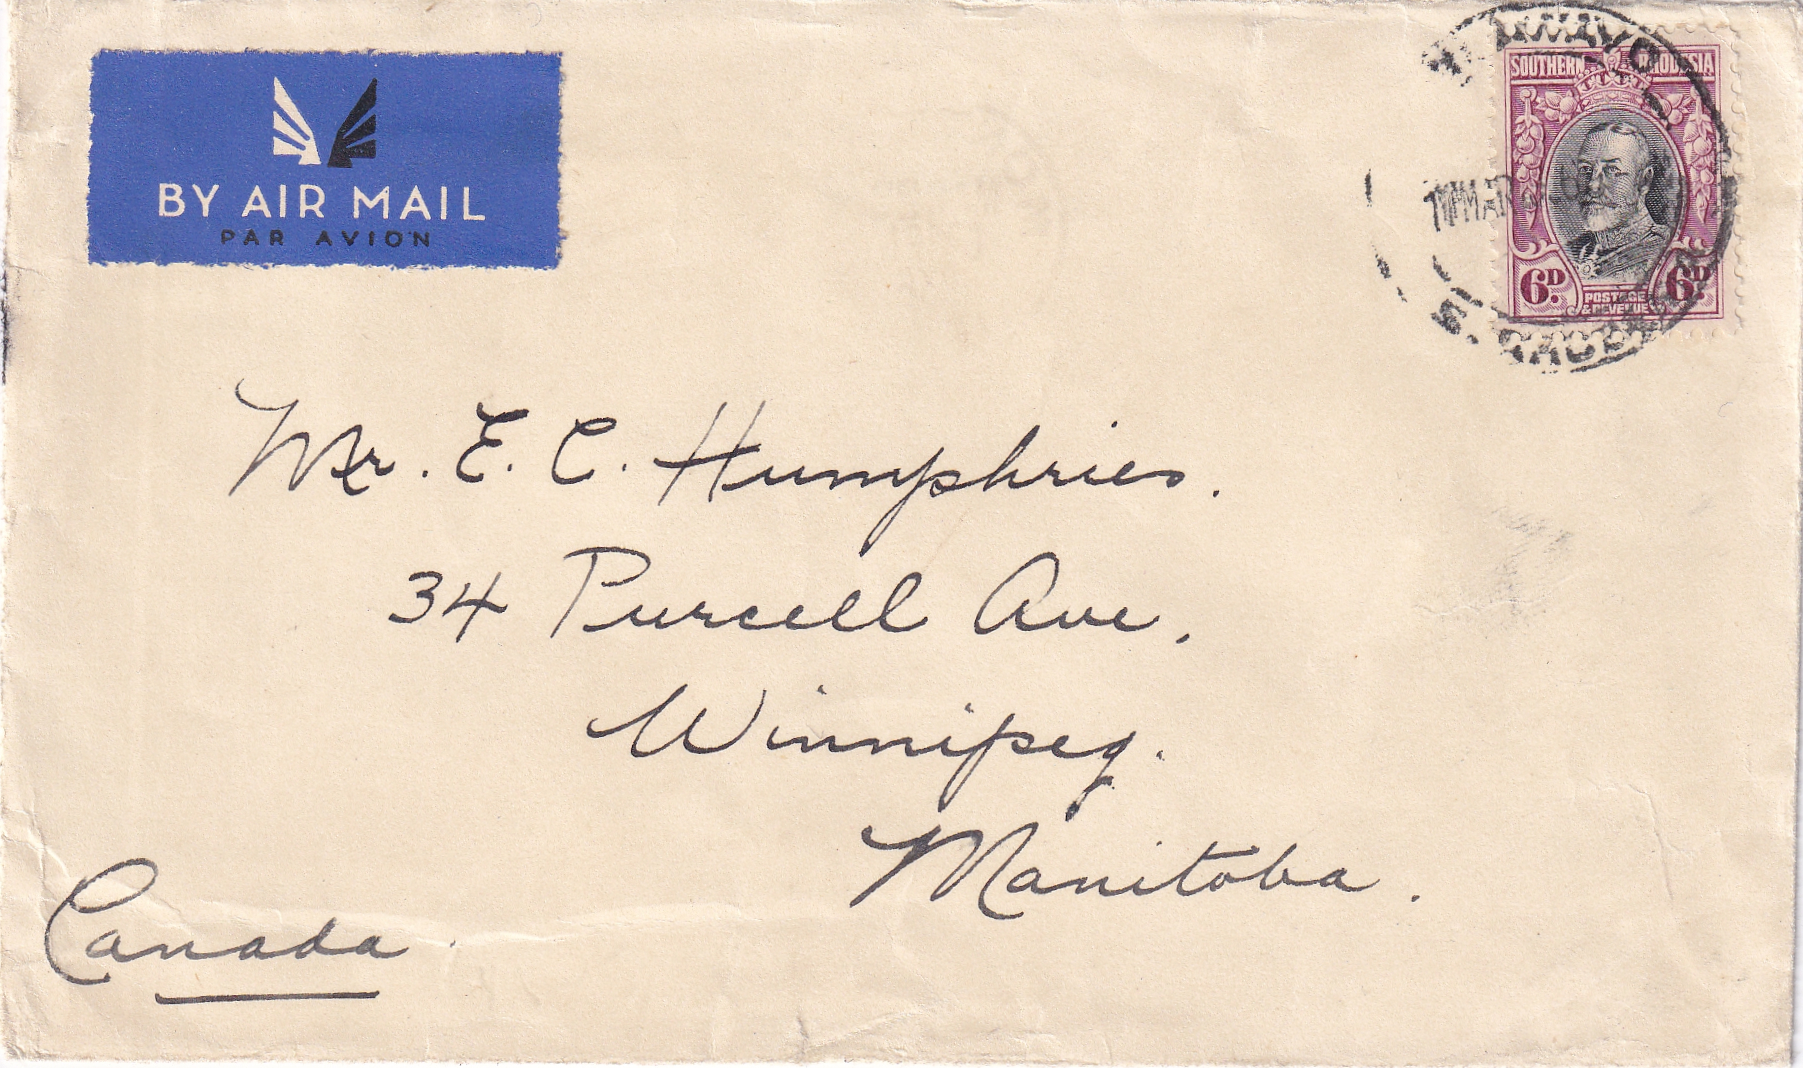 BY AIR MAIL
PAR AVION
SOUTHERN RHODESIA
6D. 6D.
POSTAGE
& REVENUE
S. RHODESIA
Mr. E. C. Humphries.
34 Purcell Ave.
Winnipeg.
Manitoba.
Canada.